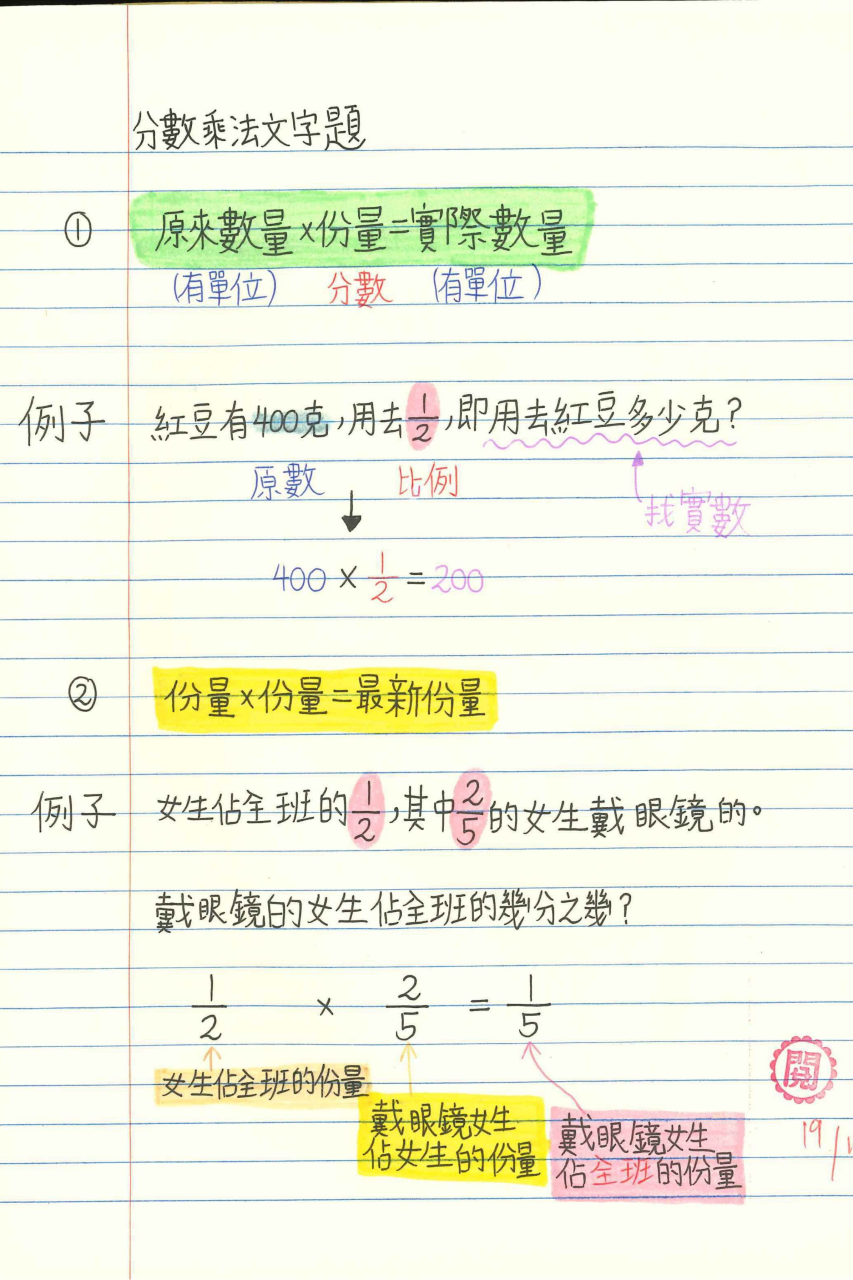 分數乘法文字題
① 原來數量×份量=實際數量
(有單位) 分數 (有單位)
例子 紅豆有400克,用去1/2,即用去紅豆多少克?
原數 比例
找實數
400 × 1/2 = 200
② 份量×份量=最新份量
例子 女生佔全班的1/2,其中2/5的女生戴眼鏡的。
戴眼鏡的女生佔全班的幾分之幾?
1/2 × 2/5 = 1/5
女生佔全班的份量
戴眼鏡女生
佔女生的份量
戴眼鏡女生
佔全班的份量
閱
19/